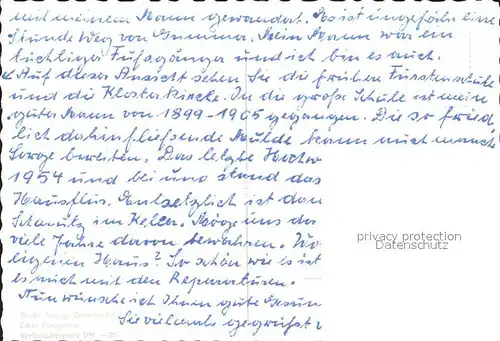 mit meinem Mann gewandert. Es ist ungefähr eine
Stunde Weg von Grimma. Mein Mann war ein
tüchtiger Fußgänger und ich bin es auch.
Auf dieser Ansicht sehen Sie die frühere Fürstenschule
und die Klosterkirche. In die große Schule ist mein
guter Mann von 1899-1905 gegangen. Die so fried
lich dahinfließende Mulde kann auch manch
Sorge bereiten. Das letzte Hochw
1954 und bei uns stand das
Hausflur. Entsetzlich ist dan
Schmutz im Keller. Möge uns da
viele Jahre davon bewahren. Wo
Ihr Haus? So schön wie es ist
es auch mit den Reparaturen.
Nun wünsche ich Ihnen gute Gesun
Sie vielmals gegrüßt
privacy protection
Datenschutz
Echte Fotografie